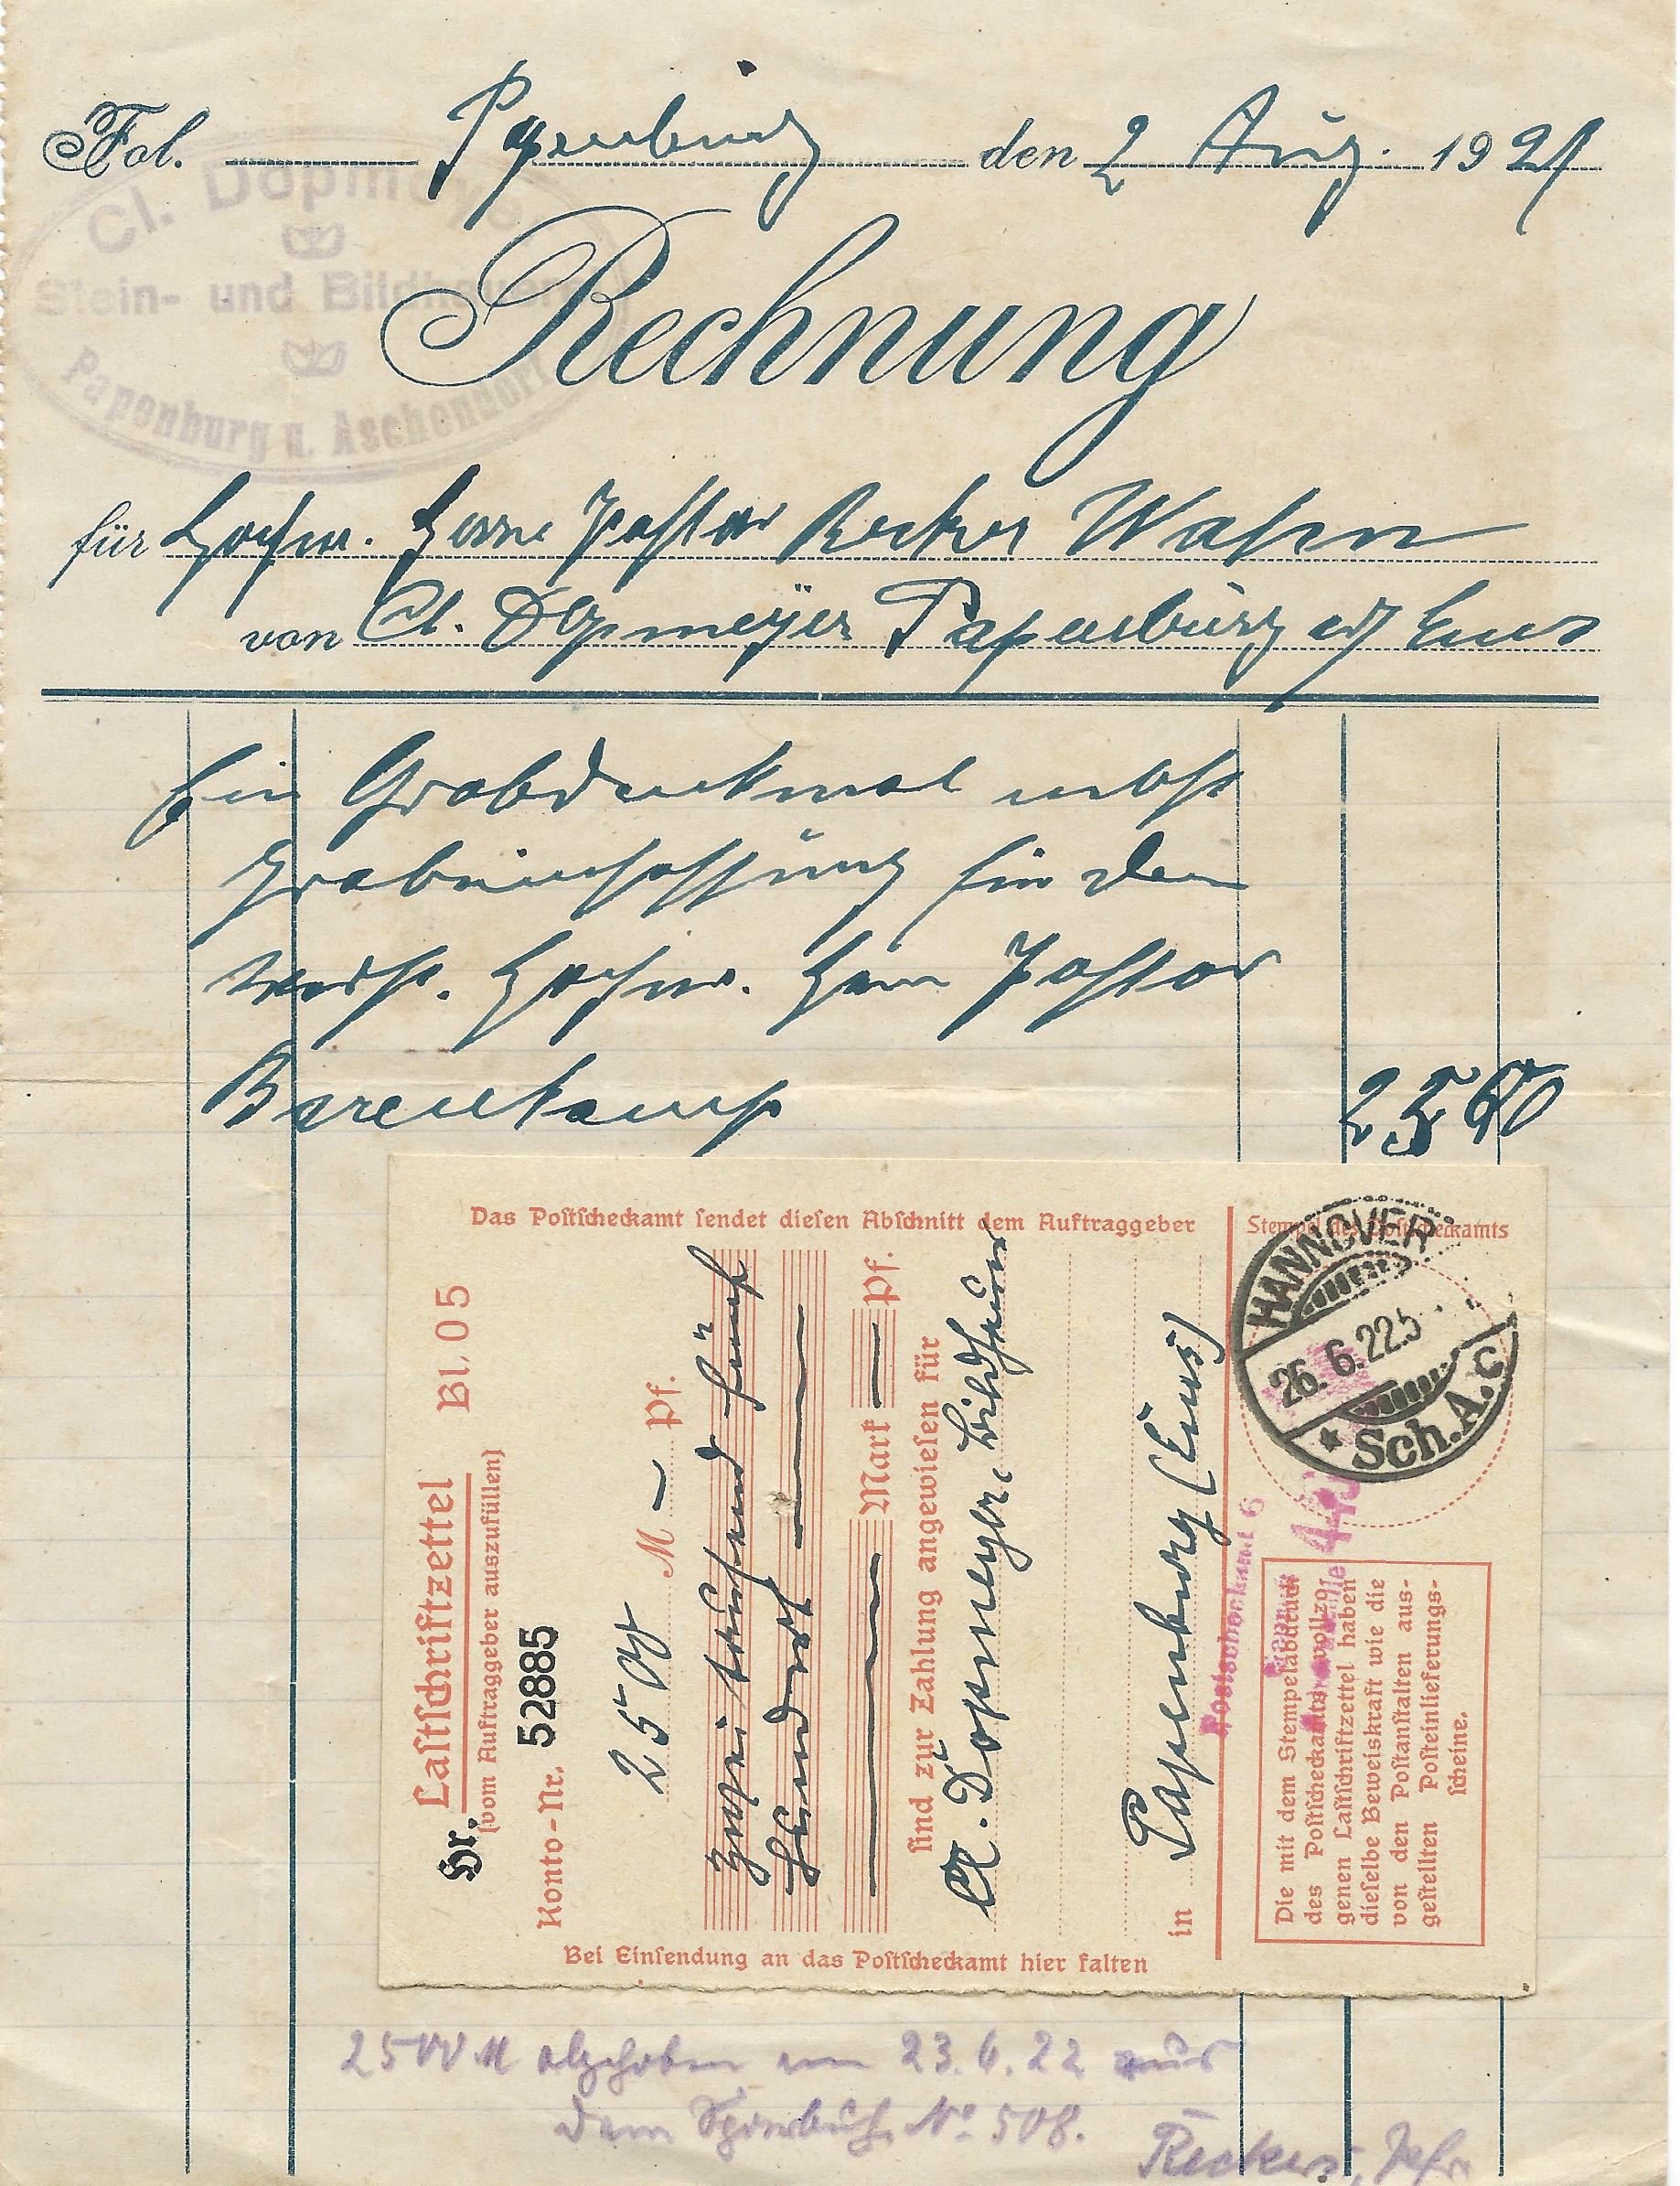 Fol. Papenburg den 2 Aug. 1921
Cl. Döpmeyer
Stein- und Bildhauerei
Papenburg u. Aschendorf
Rechnung
für Hochw. Herrn Pastor Reckers Wahn
von Cl. Döpmeyer Papenburg a/ Ems
Ein Grabdenkmal nebst
Grabeinfassung für den
verst. Hochw. Herrn Pastor
Berenkamp 2500
Das Postscheckamt sendet diesen Abschnitt dem Auftraggeber
Hr. Lastschriftzettel Bl. 05
(vom Auftraggeber auszufüllen)
Konto-Nr. 52885
2500 M — Pf.
Zweitausend fünf
hundert
Mark — Pf.
sind zur Zahlung angewiesen für
Cl. Döpmeyer, Bildhauer
in Papenburg (Ems)
Bei Einsendung an das Postscheckamt hier falten
Stempel des Postscheckamts
HANNOVER
26.6.22.5
Sch.A. c
Die mit dem Stempelabdruck
des Postscheckamts vollzo-
genen Lastschriftzettel haben
dieselbe Beweiskraft wie die
von den Postanstalten aus-
gestellten Posteinlieferungs-
scheine.
2500 M abgehoben am 23.6.22 aus
dem Sparbuch No 508.
Reckers,